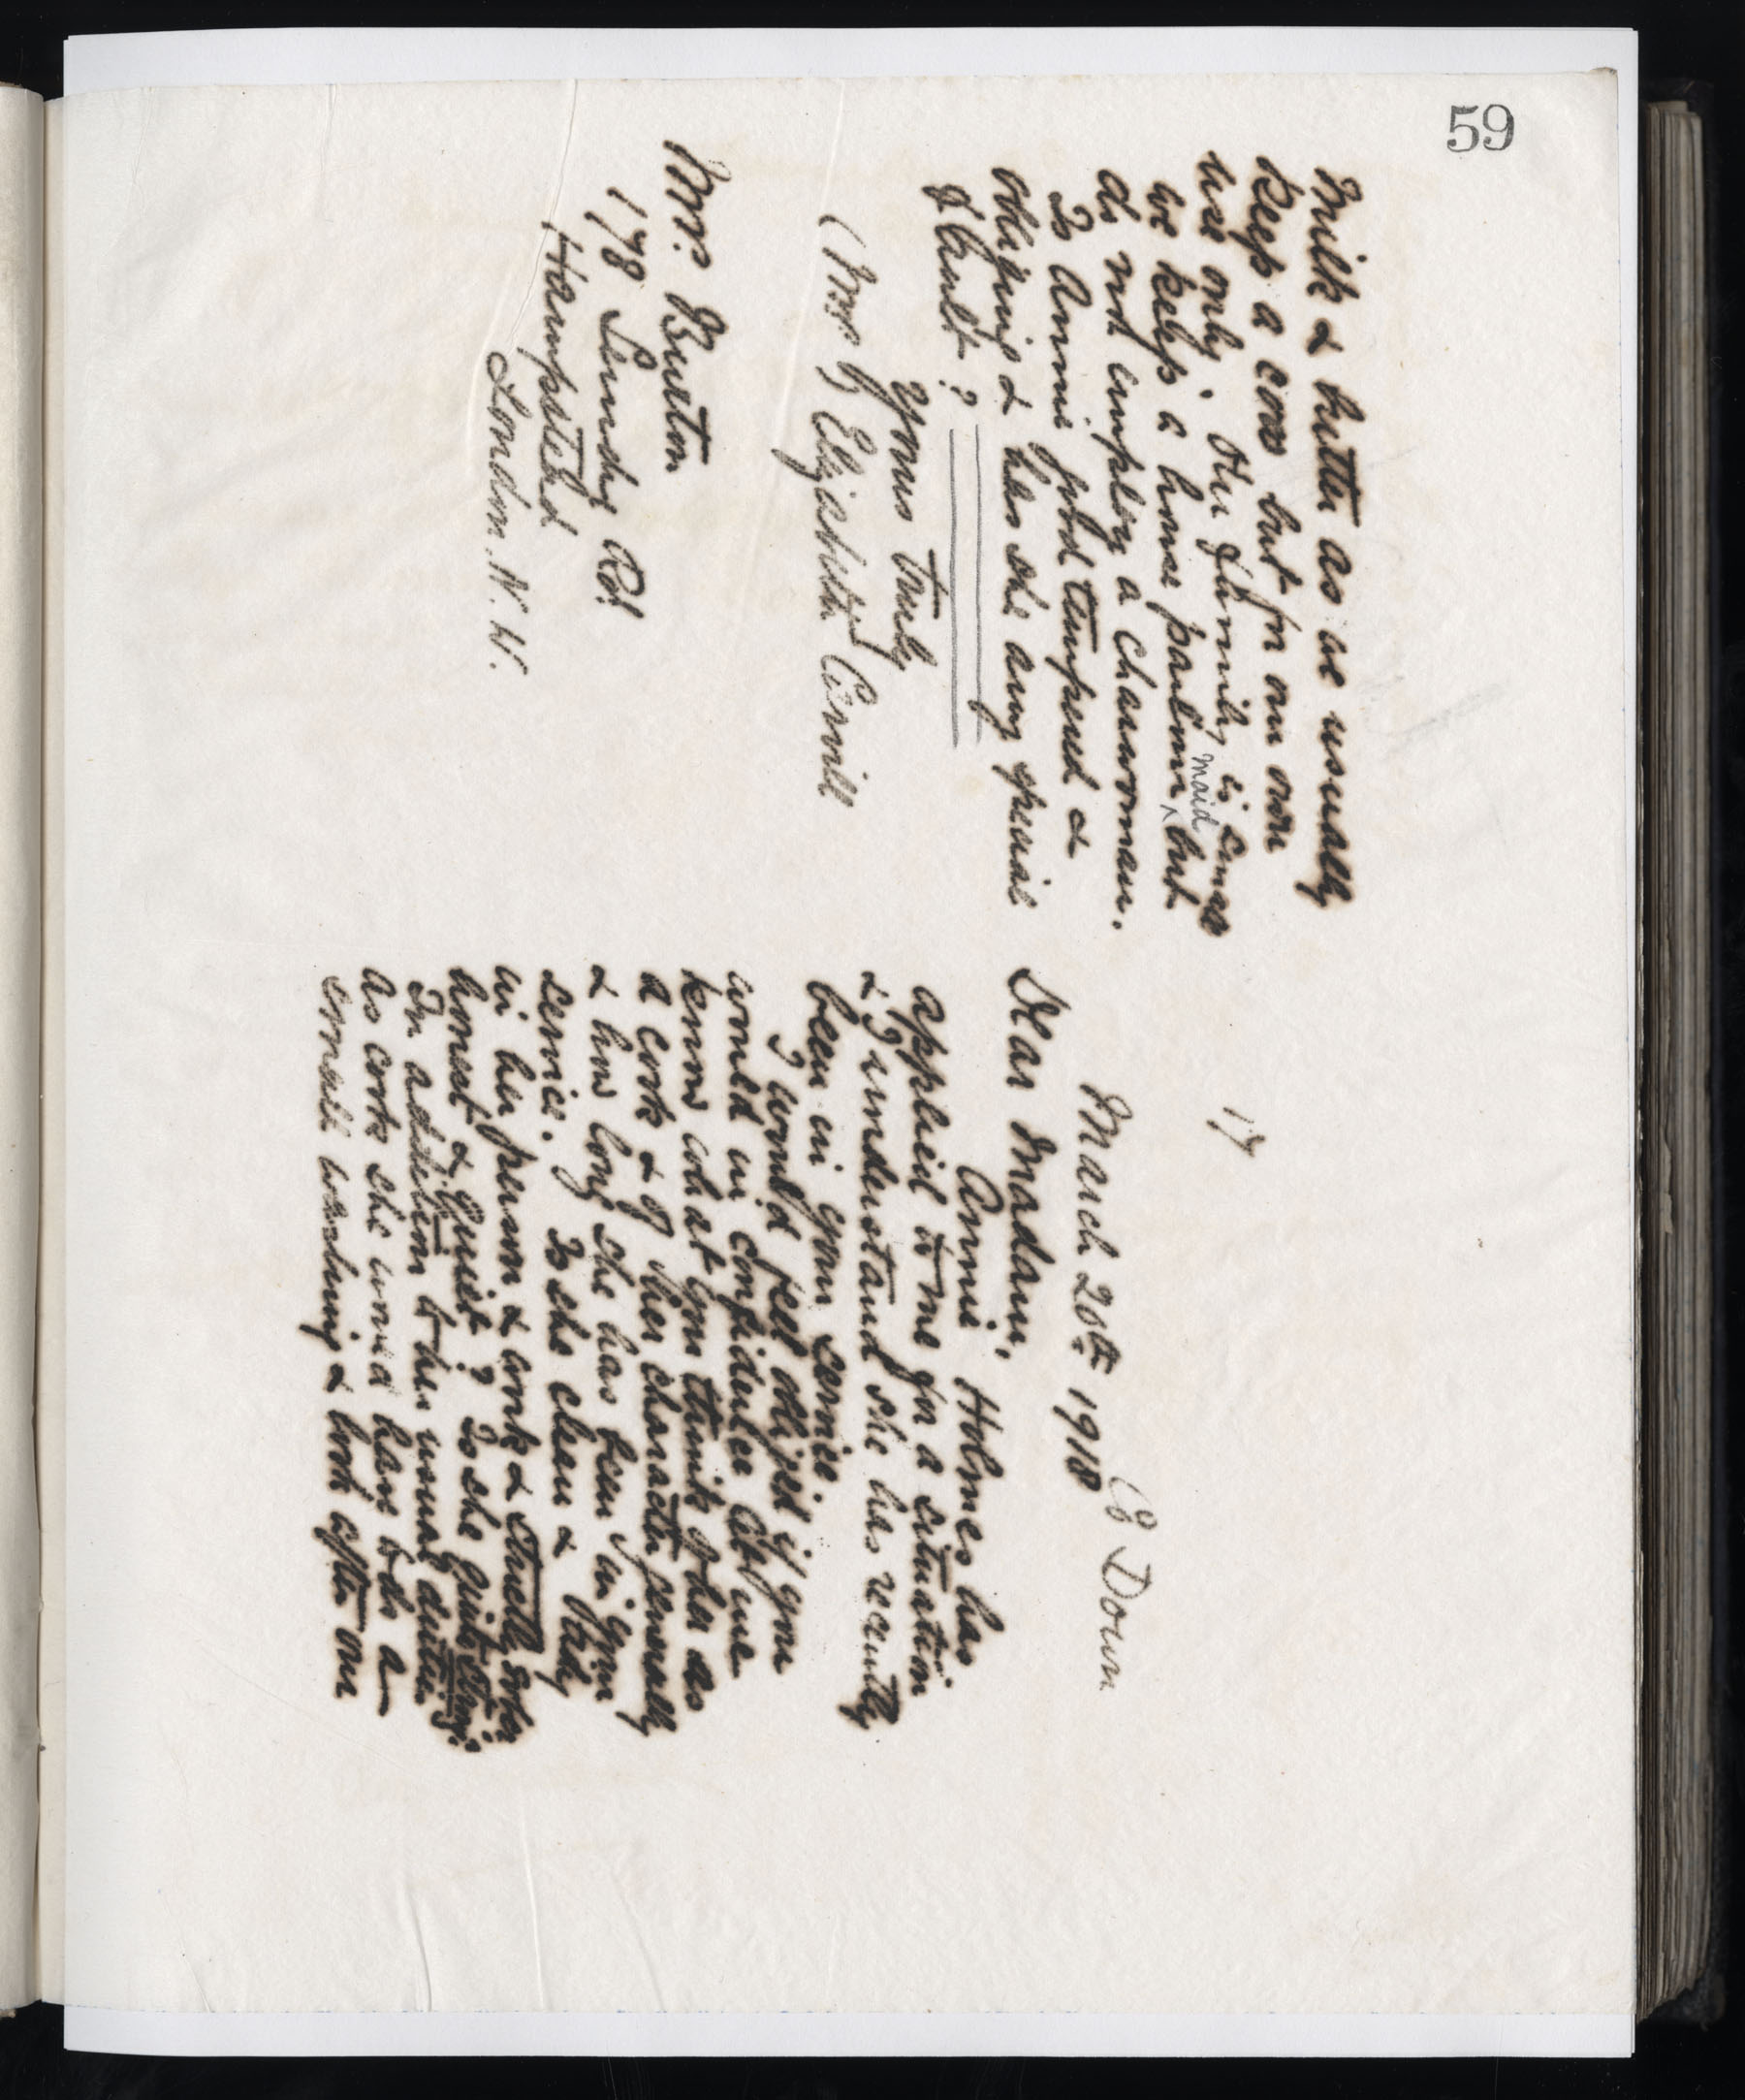 59
17
Co Down
March 20th 1918
Dear Madam,
Annie Holmes has
applied to me for a situation
& I understand she has recently
been in your service.
I would feel obliged if you
would in confidence let me
know what you think of her as
a cook & of her character generally
& how long she has been in your
service. Is she clean & tidy
in her person & work & strictly sober
honest & quiet? Is she quite strong.
In addition to her usual duties
as cook she would have to do a
small washing & look after our
milk & butter as we usually
keep a cow but for our own
use only. Our family is small
we keep a house parlour maid but
do not employ a charwoman.
Is Annie good tempered &
obliging & has she any special
fault?
Yours truly
(Mrs) Elizabeth Carvill
Mrs. Burton
178 Sumatra Rd
Hampstead
London. N.W.